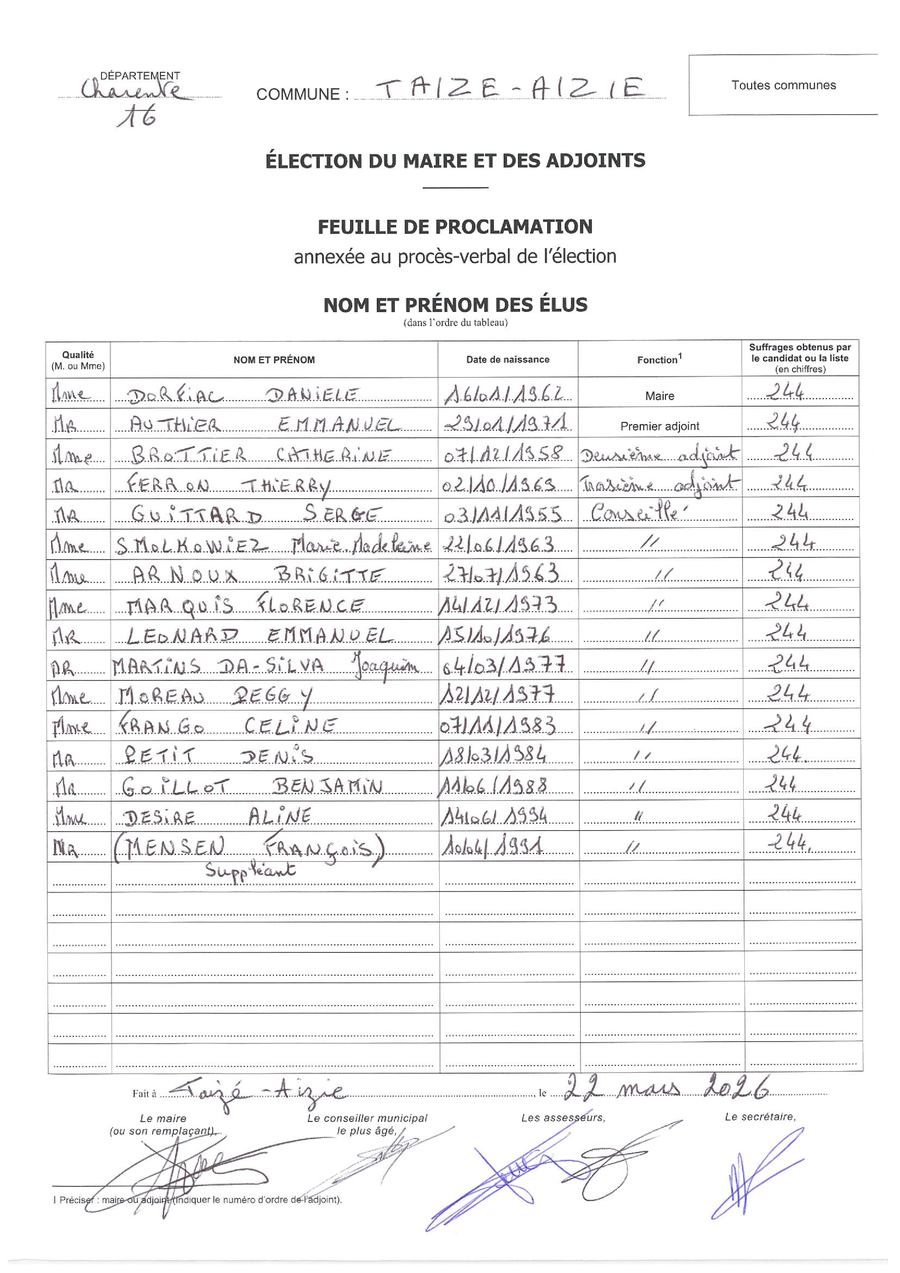 DÉPARTEMENT
Charente
16
COMMUNE : TAIZE-AIZIE
Toutes communes
ÉLECTION DU MAIRE ET DES ADJOINTS
FEUILLE DE PROCLAMATION
annexée au procès-verbal de l'élection
NOM ET PRÉNOM DES ÉLUS
(dans l'ordre du tableau)
Qualité (M. ou Mme) NOM ET PRÉNOM Date de naissance Fonction1 Suffrages obtenus par le candidat ou la liste (en chiffres)
Mme DORFIAC DANIELE 16/01/1962 Maire 244
MR AUTHIER EMMANUEL 29/01/1971 Premier adjoint 244
Mme BROTTIER CATHERINE 07/12/1958 Deuxième adjoint 244
MR FERRON THIERRY 02/10/1969 Troisième adjoint 244
MR GUITTARD SERGE 03/11/1955 Conseillé 244
Mme SMOLKOWIEZ Marie-Madeleine 22/06/1963 // 244
Mme ARNOUX BRIGITTE 27/07/1963 // 244
Mme MARQUIS FLORENCE 14/12/1973 // 244
MR LEONARD EMMANUEL 15/10/1976 // 244
MR MARTINS DA-SILVA Joaquim 04/03/1977 // 244
Mme MOREAU PEGGY 12/12/1977 // 244
Mme FRANGO CELINE 07/11/1983 // 244
MR PETIT DENIS 18/03/1984 // 244
MR GOILLOT BENJAMIN 11/06/1988 // 244
Mme DESIRE ALINE 14/06/1994 // 244
MR (MENSEN FRANÇOIS) 10/04/1991 // 244
Suppléant
Fait à Taizé-Aizie, le 22 mars 2026
Le maire (ou son remplaçant), Le conseiller municipal le plus âgé, Les assesseurs, Le secrétaire,
1 Préciser : maire ou adjoint (indiquer le numéro d'ordre de l'adjoint).